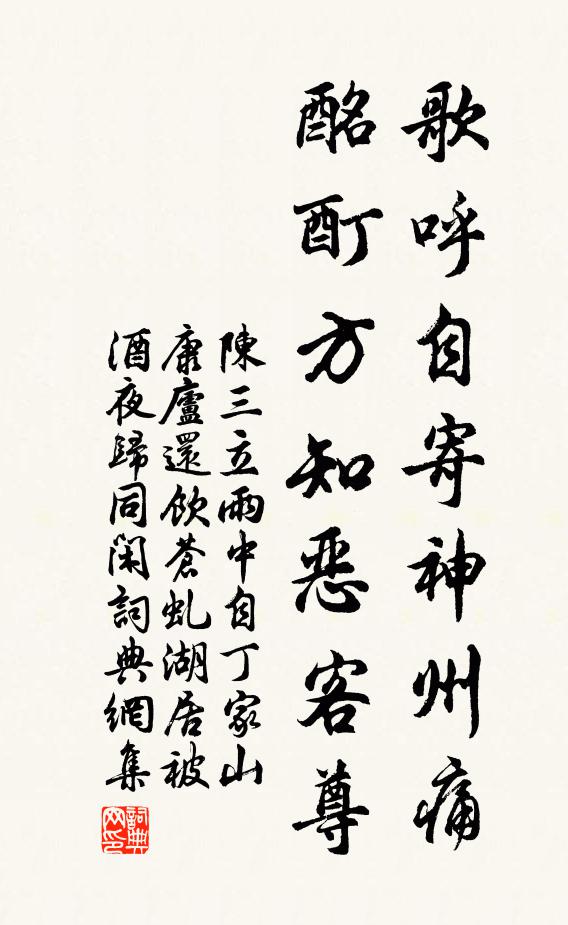 歌呼自寄神州痛
酩酊方知惡客尊
陳三立雨中自丁家山
康廬還飲蒼虬湖居被
酒夜歸同閑詞典網集
詞典網印